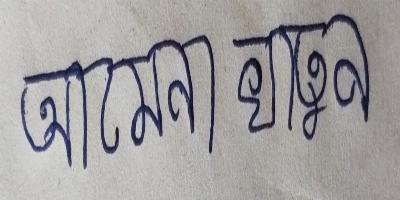 আমেনা খাতুন